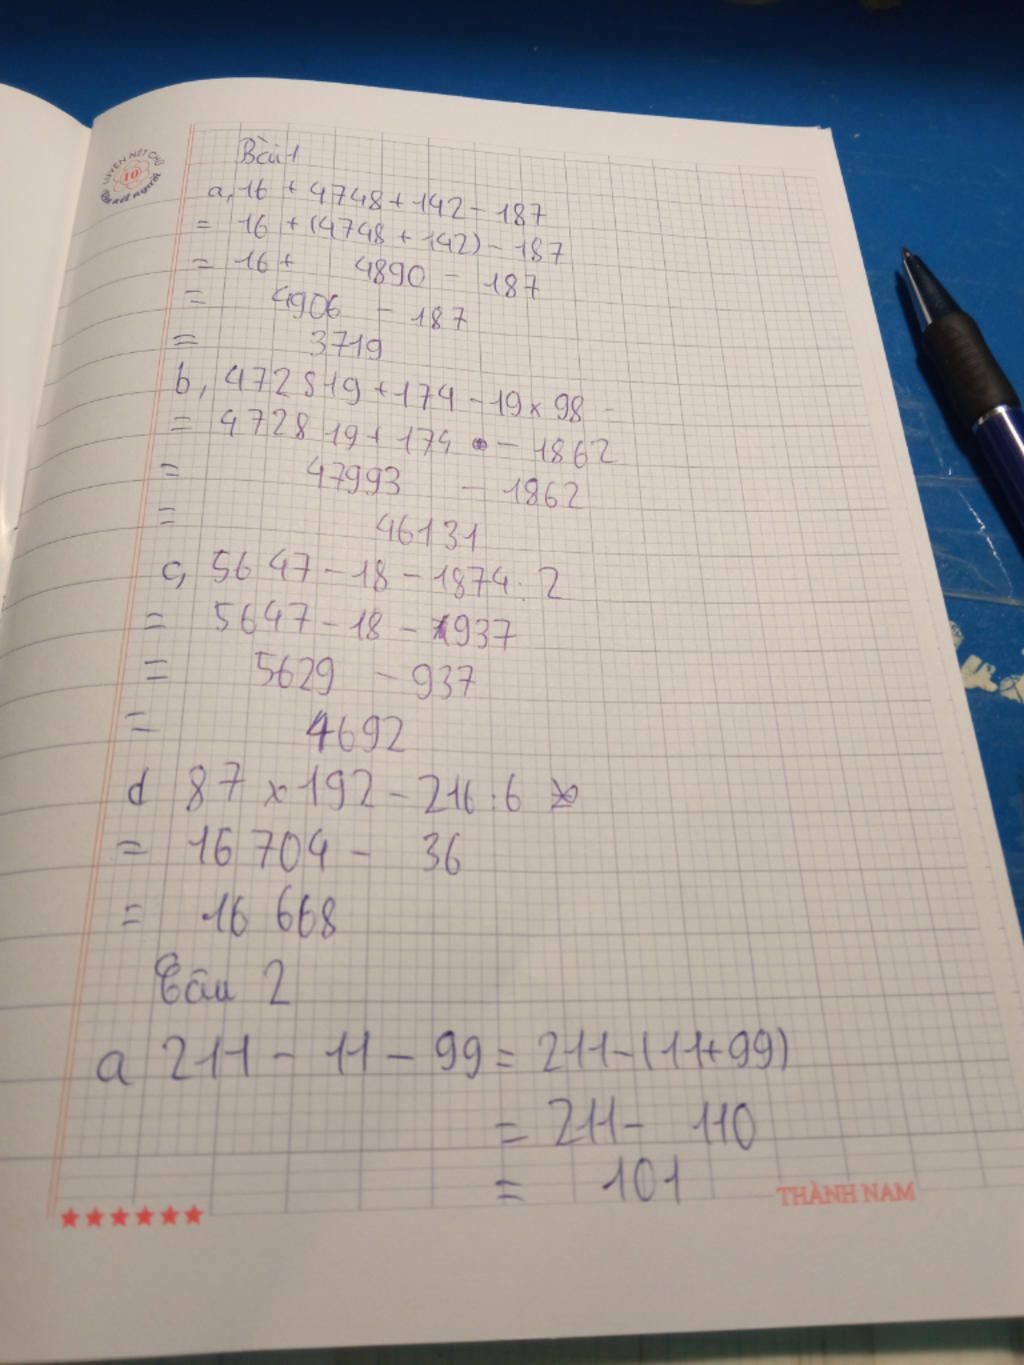 LUYỆN NÉT CHỮ
10
Rèn nết người
Bài 1
a, 16 + 4748 + 142 - 187
= 16 + (4748 + 142) - 187
= 16 + 4890 - 187
= 4906 - 187
= 3719
b, 472819 + 174 - 19 x 98
= 472819 + 174 - 1862
= 47993 - 1862
= 46131
c, 5647 - 18 - 1874 : 2
= 5647 - 18 - 937
= 5629 - 937
= 4692
d 87 x 192 - 216 : 6
= 16704 - 36
= 16 668
Câu 2
a 211 - 11 - 99 = 211 - (11 + 99)
= 211 - 110
= 101
THÀNH NAM